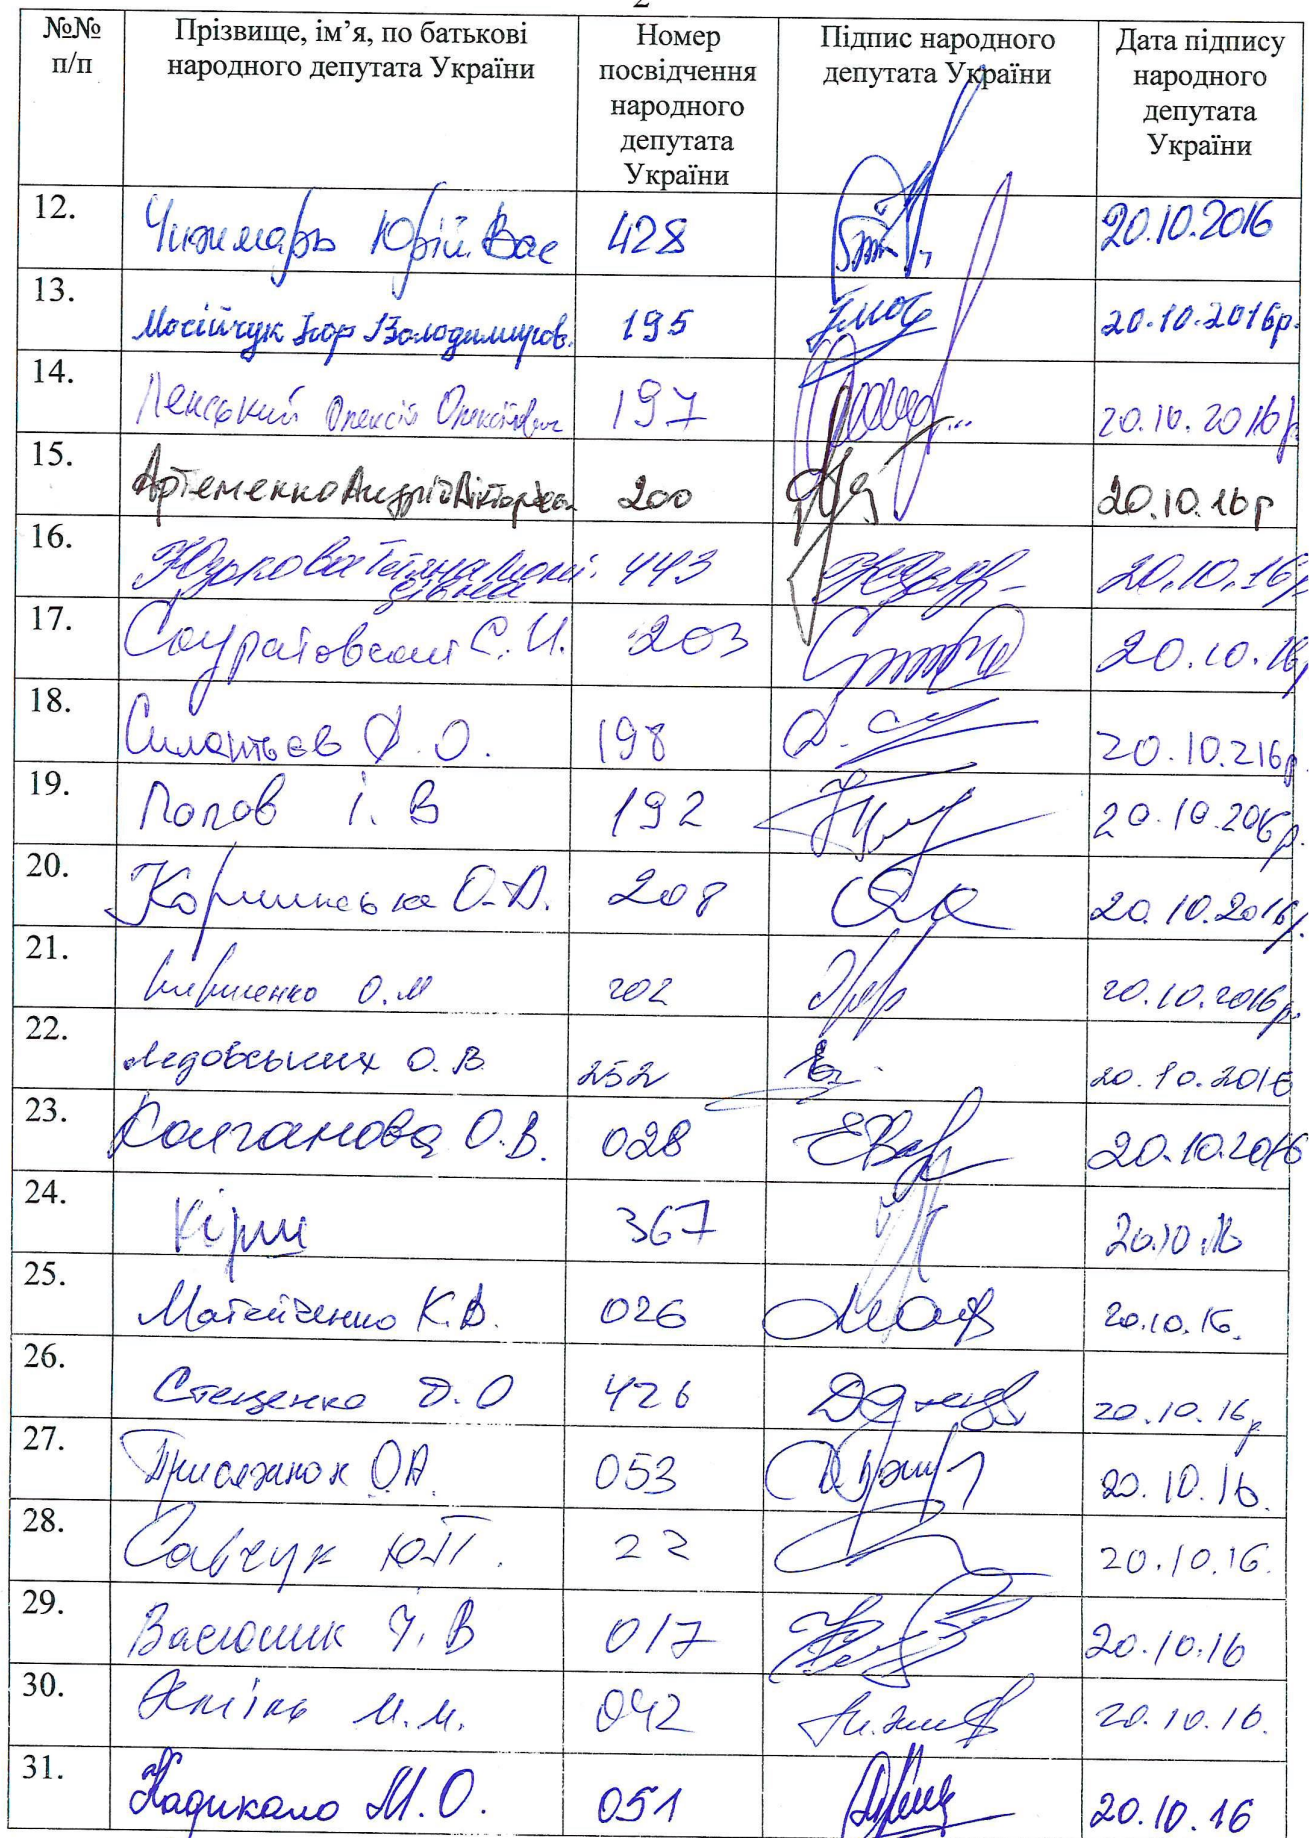 2
№№ Прізвище, ім’я, по батькові Номер Підпис народного Дата підпису
п/п народного депутата України посвідчення депутата України народного
народного депутата
депутата України
України
12. Чижмарь Юрій Вас 428 20.10.2016
13. Мосійчук Ігор Володимиров. 195 20.10.2016р.
14. Ленський Олексій Олексійович 197 20.10.2016р.
15. Артеменко Андрій Вікторович 200 20.10.16р
16. Юзькова Тетяна Леоні- 443 20.10.16р
дівна
17. 203 20.10.16р
18. Силантьєв Д.О. 198 20.10.216р.
19. Попов І. В 192 20.10.2016р.
20. Корчинська О.А. 208 20.10.2016р.
21. Кириченко О.М 202 20.10.2016р.
22. Ледовських О.В. 252 20.10.2016
23. О.В. 028 20.10.2016
24. Кірш 367 20.10.16
25. Матейченко К.В. 026 20.10.16.
26. Стеценко Д.О 426 20.10.16р
27. Присяжнюк О.А. 053 20.10.16.
28. Савчук Ю.П. 22 20.10.16.
29. Васюник І. В 017 20.10.16
30. Хміль М.М. 042 20.10.16.
31. Кадикало М.О. 051 20.10.16